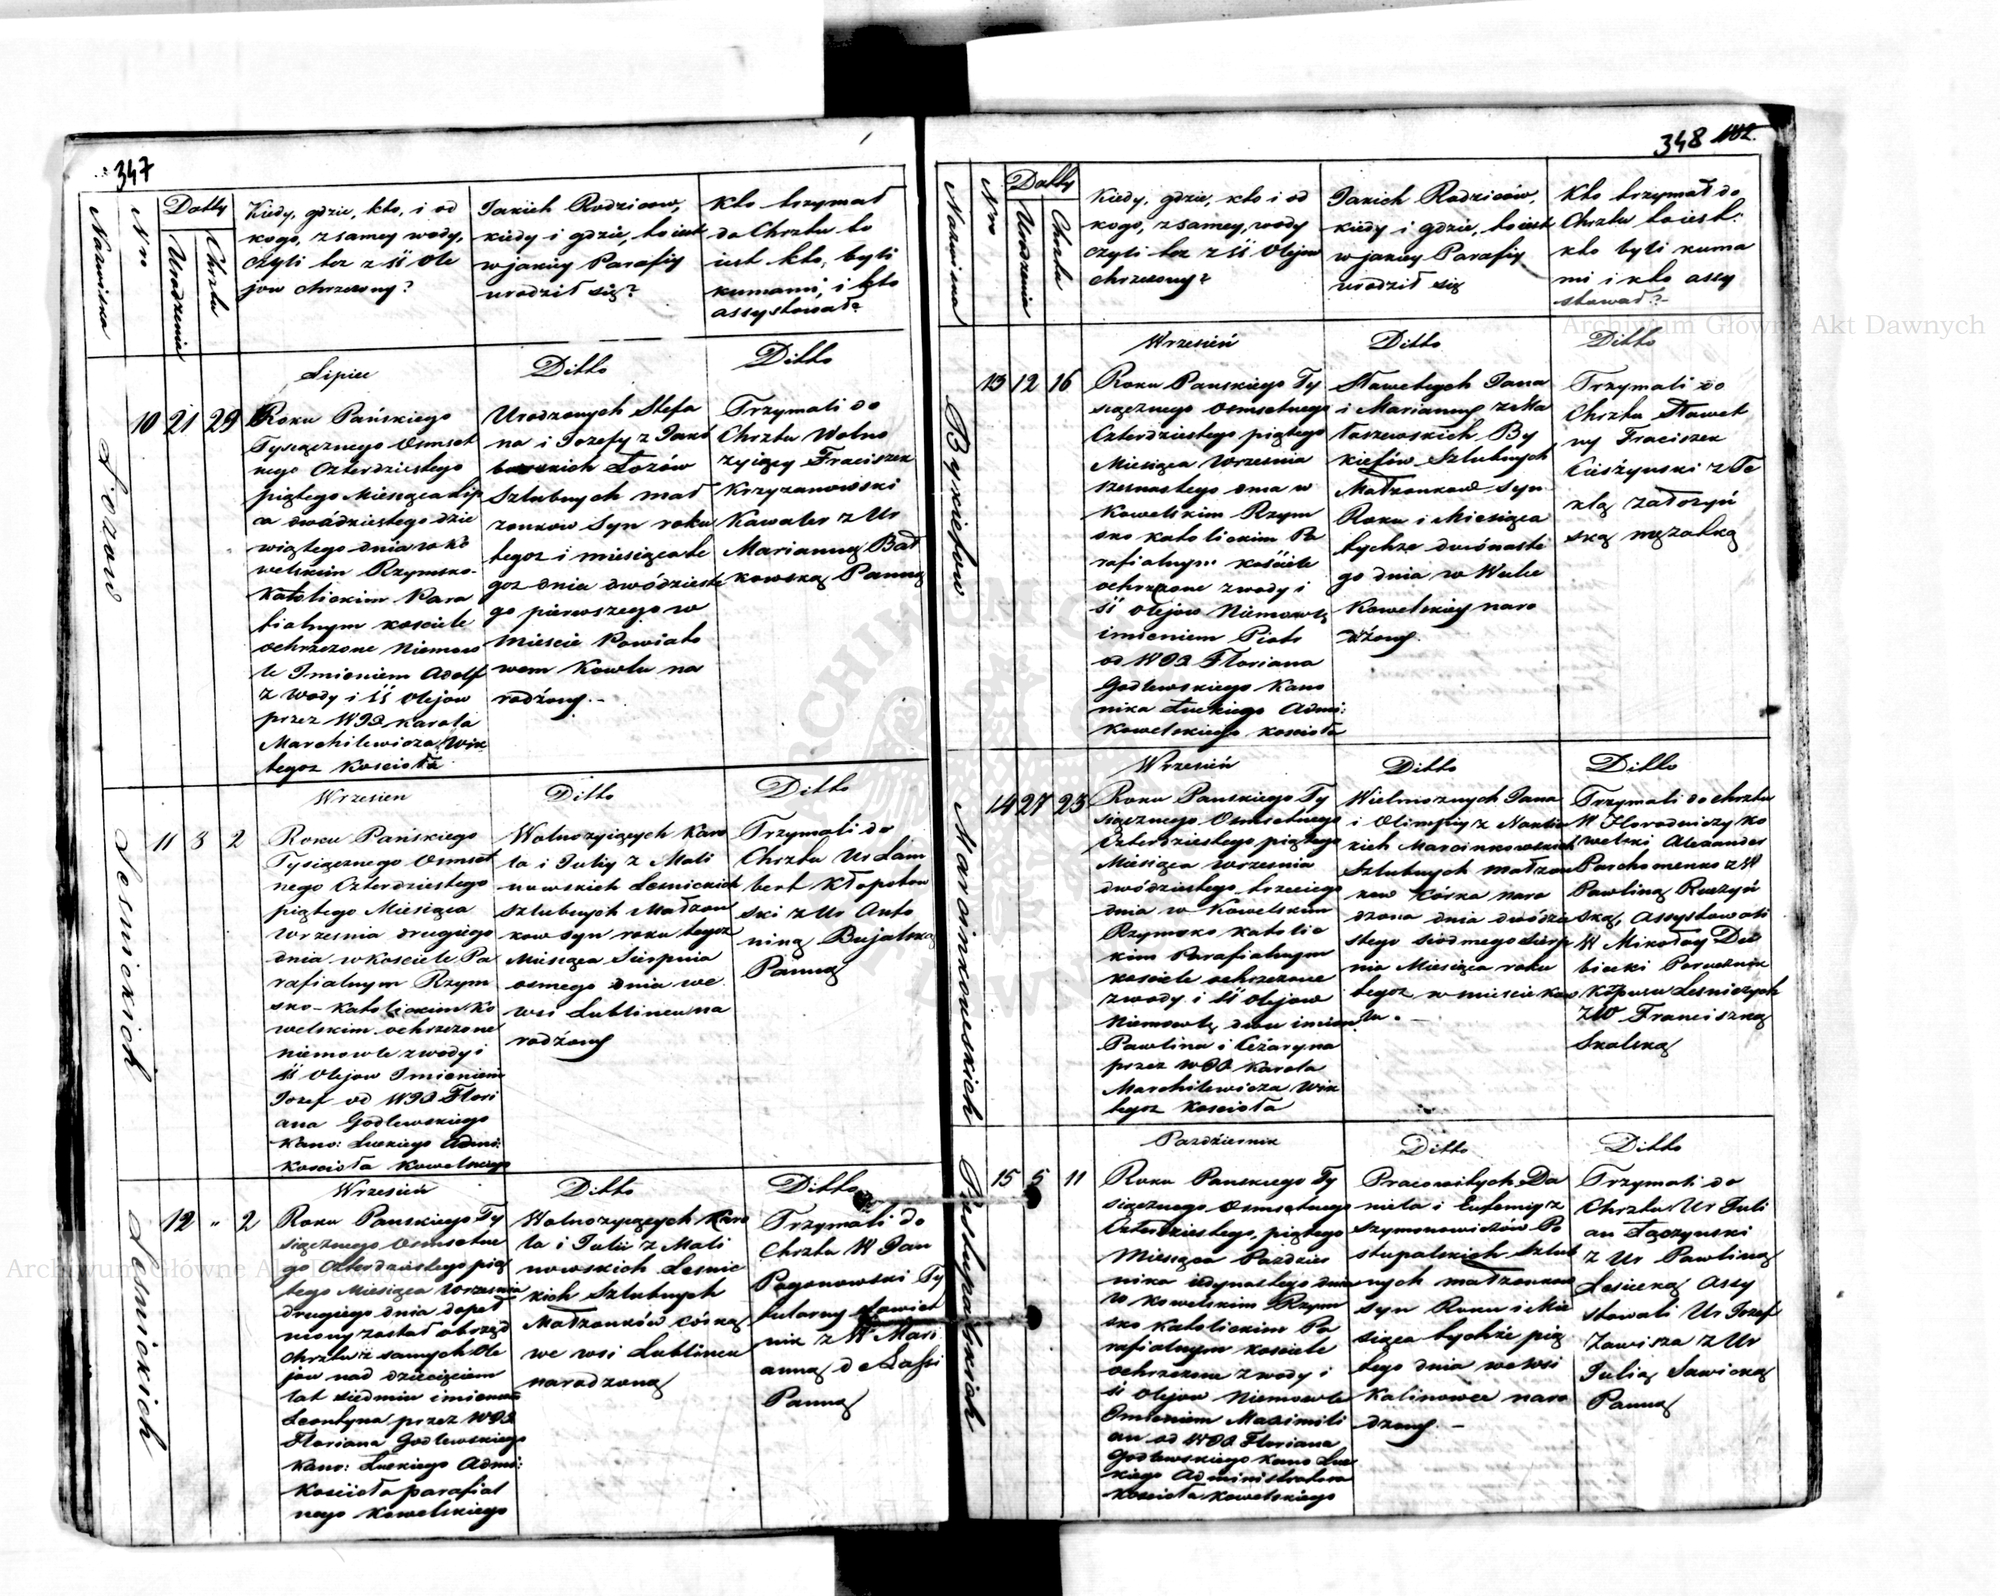 347
Nazwiska
Nro
Datty
Urodzenia
Chrztu
Kiedy, gdzie, kto, i od
kogo, z samey wody,
czyli tez z śś Ole
jow chrzczony?
Jakich Rodzicow,
kiedy i gdzie, to iest
w jakiey Parafiy
urodził się?
Kto trzymał
do Chrztu to
iest kto, byli
kumami, i kto
assystował?
Łozow
10
21
29
Lipiec
Roku Pańskiego
Tysiącznego Osmset
nego Czterdziestego
piątego Miesiąca Lip
ca dwódziestego dzie
wiątego dnia w Ko
welskim Rzymsko-
Katolickim Para
fialnym kosciele
ochrzczone Niemow
le Imieniem Adolf
z wody i śś Olejow
przez WJX Karola
Marchilewicza Wik
tegoz Koscioła
Ditto
Urodzonych Stefa
na i Jozefy z
Łozów
Szlubnych mał
zonkow Syn roku
tegoz i miesiąca te
goz dnia dwódzieste
go pierwszego w
Miescie Powiato
wem Kowlu na
rodżony.-
Ditto
Trzymali do
Chrztu Wolno
zyiący Fraciszek
Krzyzanowski
Kawaler z Ur
Marianną Bał
kowską Panną
Lesnickich
11
3
2
Wrzesien
Roku Pańskiego
Tysiącznego Osmset
nego Czterdziestego
piątego Miesiąca
Wrzesnia drugiego
dnia w Kosciele Pa
rafialnym Rzym
sko-Katolickim Ko
welskim ochrzczone
niemowle z wody i
śś Olejow Imieniem
Jozef od WJX Flori
ana Godlewskiego
Kano: Łuckiego Admi:
Kosciola Kowelskiego
Ditto
Wolnozyiących Karo
la i Julij z Mali
nowskich Lesnickich
Szlubnych Małzon
kow Syn roku tegoz
Miesiąca Sierpnia
osmego dnia we
wsi Lublincu na
rodżony
Ditto
Trzymali do
Chrztu Ur Lam
bert Kłopotow
ski z Ur Anto
niną Bujalską
Panną
Lesnickich
12
"
2
Wrzesień
Roku Panskiego Ty
siącznego Osmsetne
go Czterdziestego pią
tego Miesiąca Wrzesnia
drugiego dnia dopeł
niony został obrzęd
Chrztu z samych Ole
jow nad dziecięciem
lat siedmiu imieniem
Leontyna przez WJX
Floriana Godlewskiego
Kano: Łuckiego Admi:
Kościoła parafial
nego Kowelskiego
Ditto
Wolnozyiących Karo
la i Julii z Mali
nowskich Lesnic
kich Szlubnych
Małzonków córka
we wsi Lublincu
narodzona
Ditto
Trzymali do
Chrztu W Jan
Pogonowski Ty
tularny
nik z W Mari
anną de Lassi
Panną
348
Nazwiska
Nro
Datty
Urodzenia
Chrztu
Kiedy, gdzie, kto i od
kogo, z samey, wody
czyli tez z śś Olejow
chrzczony?
Jakich Rodziców,
kiedy i gdzie, to iest
w jakiey Parafiy
urodził się
Kto trzymał do
Chrztu to iest:
kto byli kuma
mi i kto assy
stował?-
Bykiefow
13
12
16
Wrzesień
Roku Panskiego Ty
siącznego Osmsetnego
Czterdziestego piątego
Miesiąca Wrzesnia
szesnastego dnia w
Kowelskim Rzym
sko katolickim Pa
rafialnym kościele
ochrzczone z wody i
śś Olejow Niemowlę
imieniem Piotr
od WJX Floriana
Godlewskiego Kano
nika Łuckiego Admi:
Kowelskiego kosciola
Ditto
Sławetnych Jana
i Marianny z Ma
łaszewskich By
kiefów Szlubnych
Małzonkow Syn
Roku i Miesiąca
tychze dwónaste
go dnia w Wulce
Kowelskiey naro
dżony
Ditto
Trzymali do
Chrztu Sławet
ny Fraciszek
z Te
klą Załozyń
ską męzatką
Marcinkowskich
14
27
23
Wrzesień
Roku Panskiego Ty
siącznego Osmsetnego
Czterdziestego piątego
Miesiąca Wrzesnia
dwódziestego trzeciego
dnia w Kowelskim
Rzymsko Katolic
kim Parafialnym
kościele ochrzczone
z wody i śś Olejow
Niemowlę dwu imion
Pawlina i Cezaryna
przez WJX Karola
Marchilewicza Wik
tegoz kosciola
Ditto
Wielmoznych Jana
i Olimpiy z
kich Marcinkowskich
Szlubnych małzon
kow Córka naro
dzona dnia dwódzie
stego siodmego Sierp
nia Miesiąca roku
tegoz w miescie Kow
lu.-
Ditto
Trzymali do chrztu
W Horodniczy Ko
welski Alexander
Parchomenko z W
Pawliną Ruszyń
ską, Assystowali
W Mikołay De
bicki Porucznik
Korpusu Lesniczych
z W Franciszką
Skalską
Postupalskich
15
5
11
Pazdziernik
Roku Panskiego Ty
siącznego Osmsetnego
Czterdziestego, piątego
Miesiąca Pazdzier
nika iedynastego dnia
w kowelskim Rzym
sko Katolickim Pa
rafialnym kosciele
ochrzczone z wody i
śś Olejow Niemowle
Imieniem Maximili
an od WJX Floriana
Godlewskiego Kano Łuc
kiego Administratora
kosciola kowelskiego
Ditto
Pracowitych Da
niela i Eufemiy z
Szymonowiczów Po
stupalskich Szlub
nych małzonkow
syn Roku i Mie
siąca tychże pią
tego dnia we wsi
Kalinowce naro
dzony.-
Ditto
Trzymali do
Chrztu Ur Juli
an Łączynski
z Ur Pawliną
Lesicką Assy
stowali Ur Jozef
Zawisza z Ur
Julią Sawicką
Panną
Archiwum Główne Akt Dawnych
Archiwum Główne Akt Dawnych